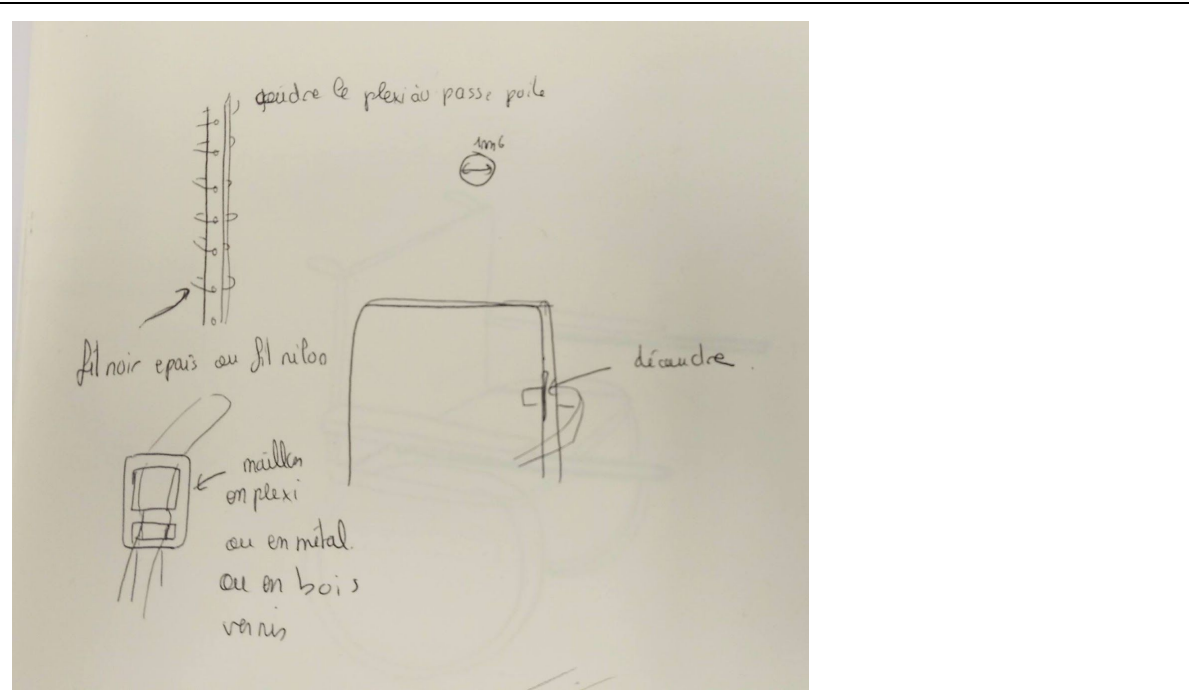 coudre le plexi au passe poile
1m6
fil noir epais ou fil niloo
découdre.
mailles
en plexi
ou en métal.
ou en bois
vernis